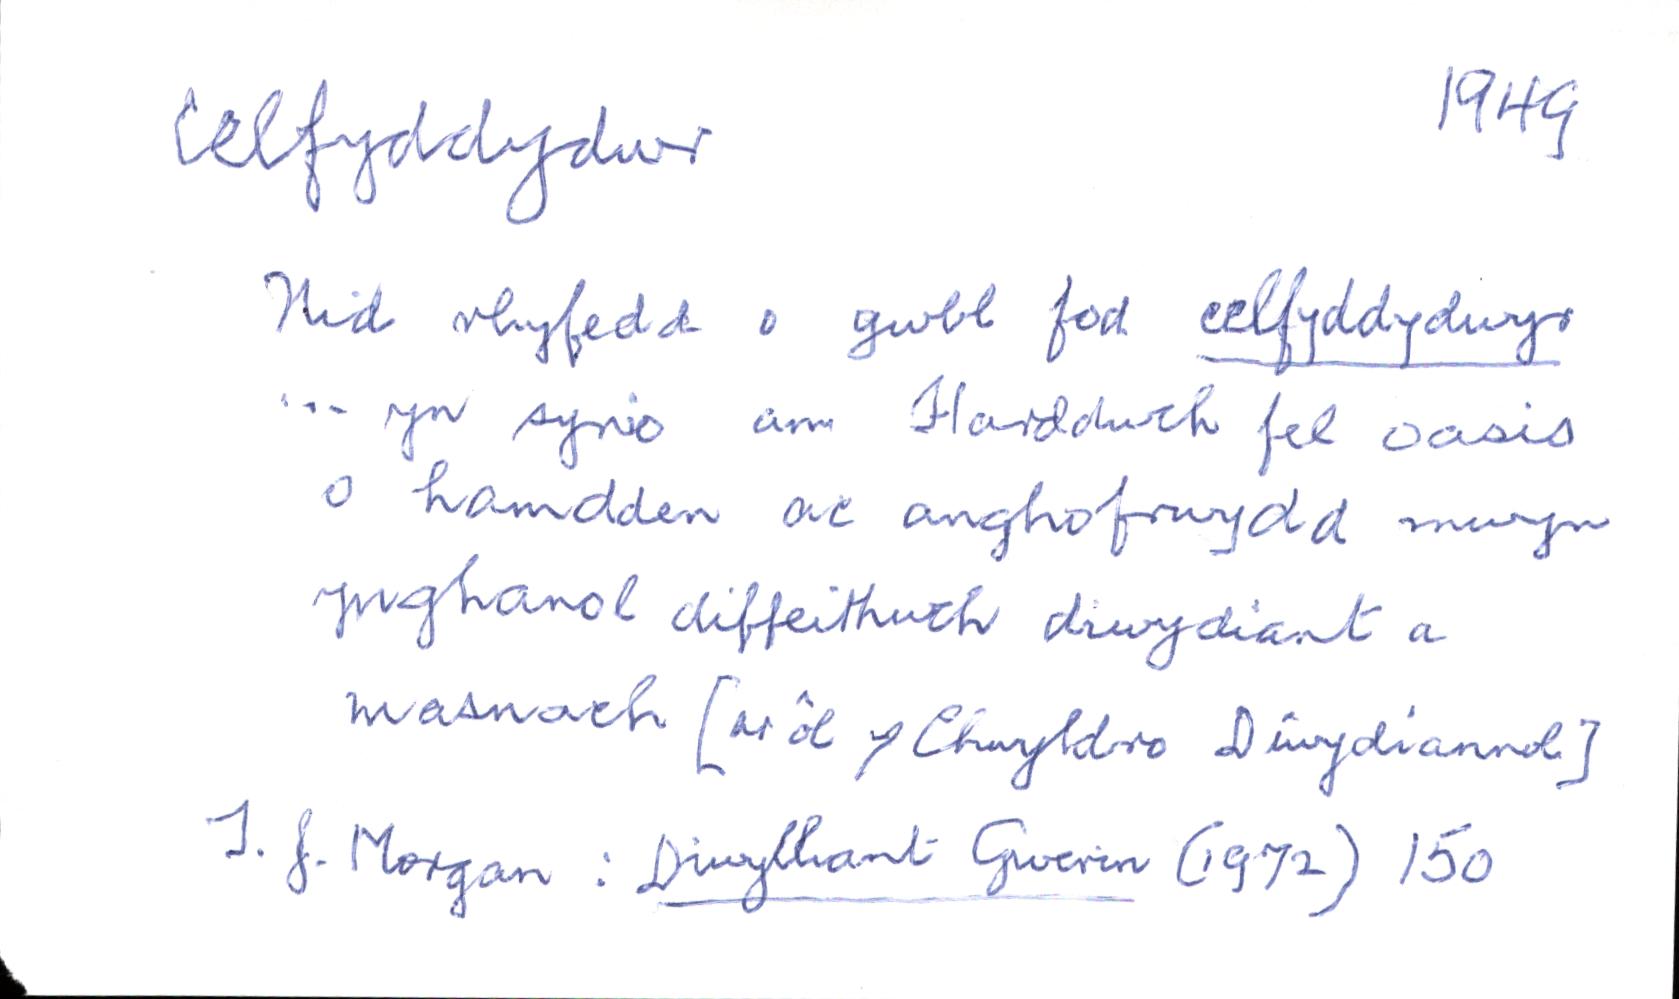 celfyddydwr 1949
Nid rhyfedd o gwbl fod celfyddydwyr
... yn synio am Harddwch fel oasis
o hamdden ac anghofrwydd mwyn
ynghanol diffeithwch diwydiant a
masnach [ar ôl y Chwyldro Diwydiannol]
T. J. Morgan : Diwylliant Gwerin (1972) 150